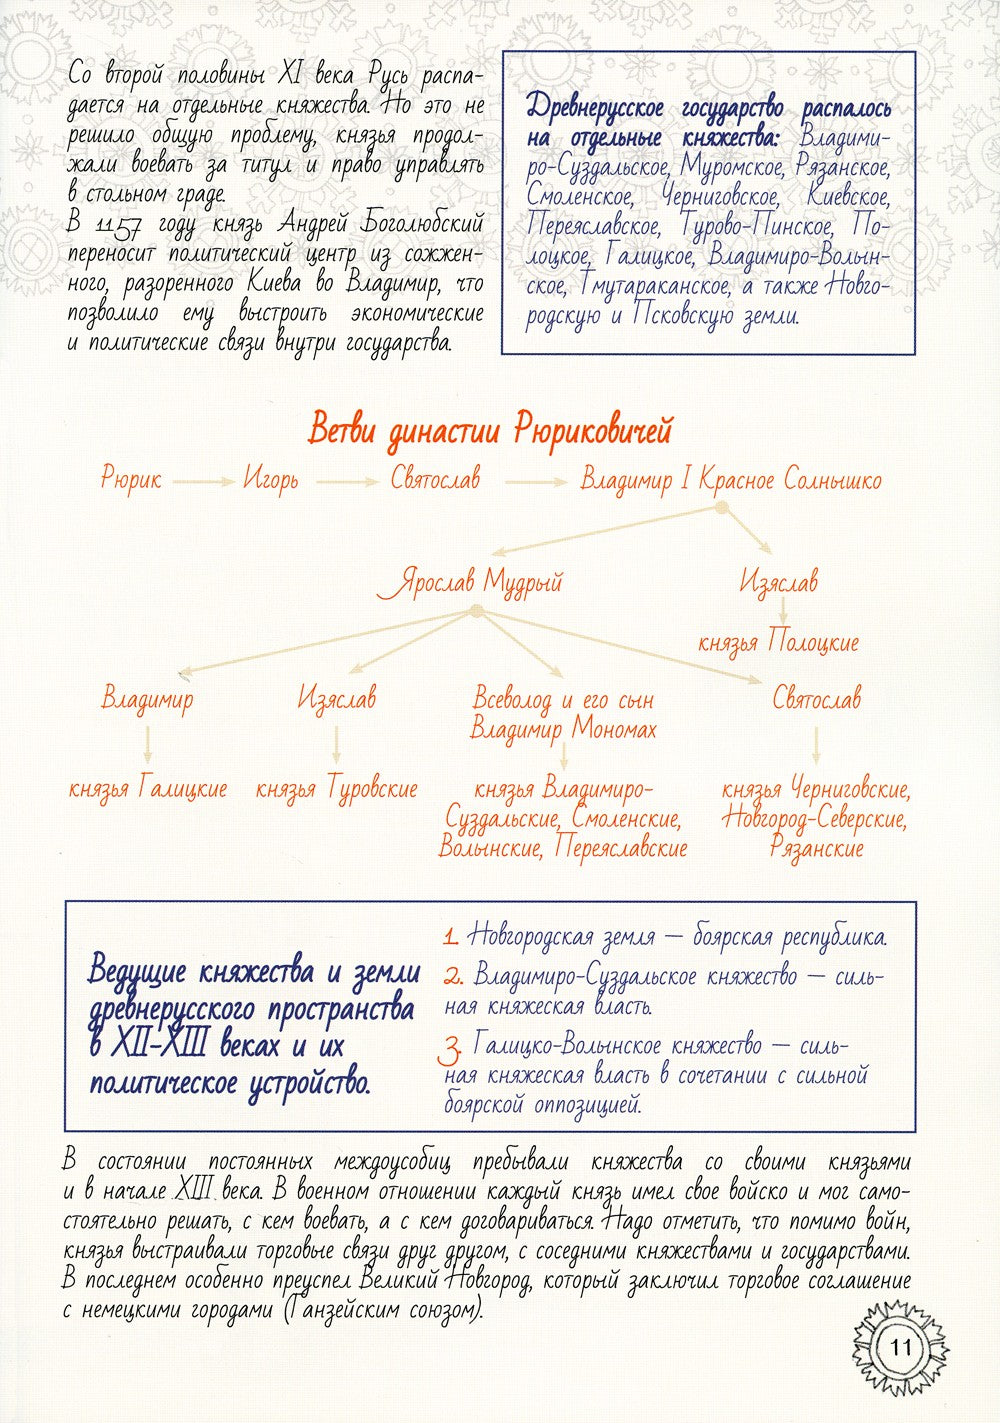 Со второй половины XI века Русь распа-
дается на отдельные княжества. Но это не
решило общую проблему, князья продол-
жали воевать за титул и право управлять
в стольном граде.
В 1157 году князь Андрей Боголюбский
переносит политический центр из сожжен-
ного, разоренного Киева во Владимир, что
позволило ему выстроить экономические
и политические связи внутри государства.
Древнерусское государство распалось
на отдельные княжества: Владими-
ро-Суздальское, Муромское, Рязанское,
Смоленское, Черниговское, Киевское,
Переяславское, Турово-Пинское, По-
лоцкое, Галицкое, Владимиро-Волын-
ское, Тмутараканское, а также Новго-
родскую и Псковскую земли.
Ветви династии Рюриковичей
Рюрик Игорь Святослав Владимир I Красное Солнышко
Ярослав Мудрый Изяслав
князья Полоцкие
Владимир Изяслав Всеволод и его сын Святослав
Владимир Мономах
князья Галицкие князья Туровские князья Владимиро- князья Черниговские,
Суздальские, Смоленские, Новгород-Северские,
Волынские, Переяславские Рязанские
Ведущие княжества и земли
древнерусского пространства
в XII-XIII веках и их
политическое устройство.
1. Новгородская земля — боярская республика.
2. Владимиро-Суздальское княжество — силь-
ная княжеская власть.
3. Галицко-Волынское княжество — силь-
ная княжеская власть в сочетании с сильной
боярской оппозицией.
В состоянии постоянных междоусобиц пребывали княжества со своими князьями
и в начале XIII века. В военном отношении каждый князь имел свое войско и мог само-
стоятельно решать, с кем воевать, а с кем договариваться. Надо отметить, что помимо войн,
князья выстраивали торговые связи друг другом, с соседними княжествами и государствами.
В последнем особенно преуспел Великий Новгород, который заключил торговое соглашение
с немецкими городами (Ганзейским союзом).
11